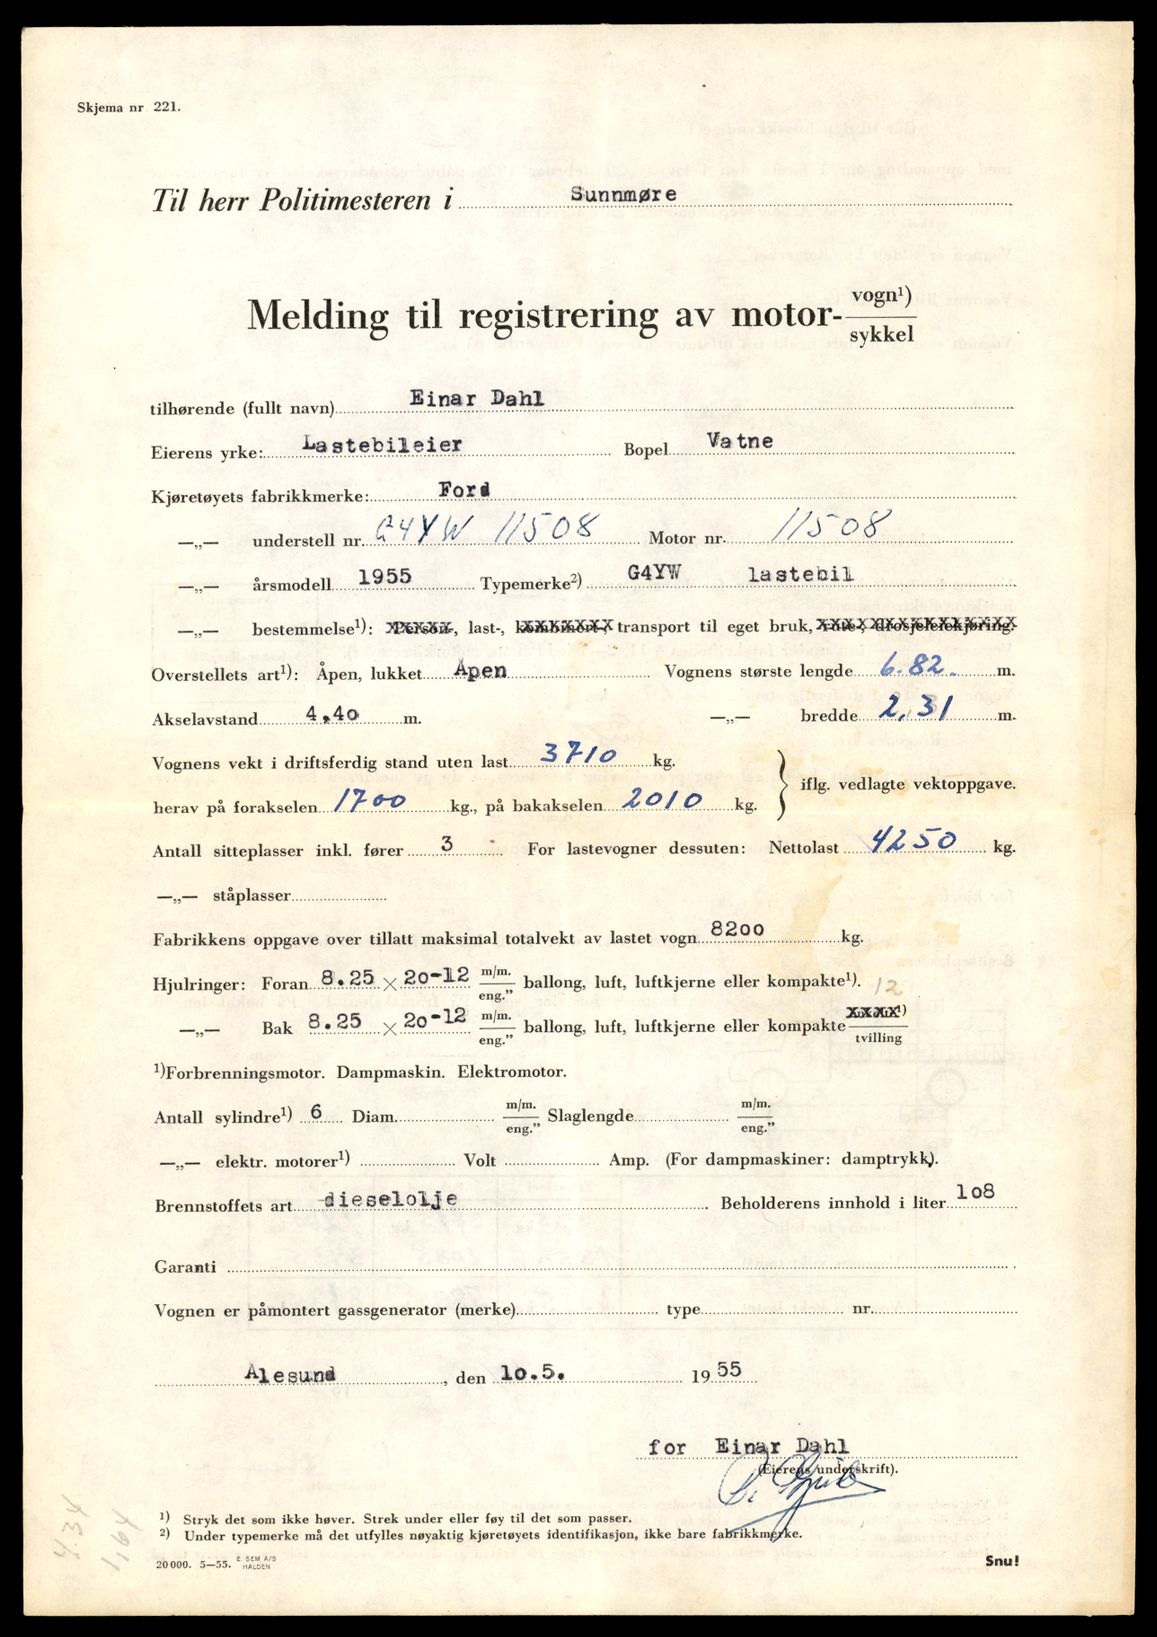 Skjema nr 221.
Til herr Politimesteren i Sunnmøre
Melding til registrering av motor- vogn¹) sykkel
tilhørende (fullt navn) Einar Dahl
Eierens yrke: Lastebileier Bopel Vatne
Kjøretøyets fabrikkmerke: Ford
—„— understell nr. G4YW 11508 Motor nr. 11508
—„— årsmodell 1955 Typemerke²) G4YW lastebil
—„— bestemmelse¹): Person-, last-, kombinert-, transport til eget bruk, rute-, drosjeleiekjøring.
Overstellets art¹): Åpen, lukket Apen Vognens største lengde 6.82. m.
Akselavstand 4,40 m. —„— bredde 2,31 m.
Vognens vekt i driftsferdig stand uten last 3710 kg.
iflg. vedlagte vektoppgave.
herav på forakselen 1700 kg., på bakakselen 2010 kg.
Antall sitteplasser inkl. fører 3 For lastevogner dessuten: Nettolast 4250 kg.
—„— ståplasser
Fabrikkens oppgave over tillatt maksimal totalvekt av lastet vogn 8200 kg.
Hjulringer: Foran 8.25 × 20-12 m/m. eng.” ballong, luft, luftkjerne eller kompakte¹). 12
—„— Bak 8.25 × 20-12 m/m. eng.” ballong, luft, luftkjerne eller kompakte ¹) tvilling
¹)Forbrenningsmotor. Dampmaskin. Elektromotor.
Antall sylindre¹) 6 Diam. m/m. eng.” Slaglengde m/m. eng.”
—„— elektr. motorer¹) Volt Amp. (For dampmaskiner: damptrykk).
Brennstoffets art dieselolje Beholderens innhold i liter 108
Garanti
Vognen er påmontert gassgenerator (merke) type nr.
Alesund, den 10.5. 1955
for Einar Dahl
(Eierens underskrift).
¹) Stryk det som ikke høver. Strek under eller føy til det som passer.
²) Under typemerke må det utfylles nøyaktig kjøretøyets identifikasjon, ikke bare fabrikkmerke.
20 000. 5—55. E. SEM A/S HALDEN
Snu!
4.34
1,64